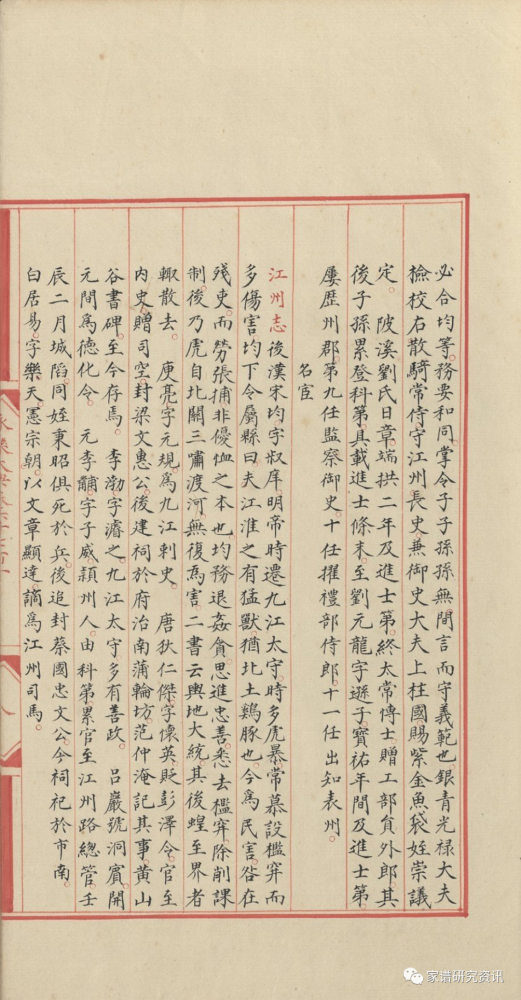 必合均等。務要和同。掌令子子孫孫無間言而守義範也銀青光禄大夫
檢校右散騎常侍守江州長史兼御史大夫上柱國賜紫金魚袋姪崇議
定。陂溪劉氏日章。端拱二年及進士第。終太常傅士贈工部貟外郎。其
後子孫累登科第。具載進士條末。至劉元龍字遜子。寶祐年間及進士第。
屢歷州郡。第九任監察御史。十任擢禮部侍郎。十一任出知表州。
名宦
江州志後漢宋均字叔庠明帝時遷九江太守。時多虎暴常慕設檻穽而
多傷害均下令屬縣曰夫江淮之有猛獸猶北土鷄豚也。今爲民害。咎在
殘吏。而勞張捕非優恤之本也。均務退姦貪思進忠善。悉去檻穽除削課
制。後乃虎自北關三嘯渡河。無復爲害。二書云輿地大統其後蝗至界者
輙散去。庾亮字元規。爲九江刺史。唐狄仁傑。字懷英。貶彭澤令。官至
内史。贈司空封梁文惠公。後建祠於府治南蒲輪坊。范仲淹記其事黄山
谷書碑。至今存焉。李渤字濬之。九江太守多有善政。吕巖號洞賓。開
元間爲德化令。元李黼字子威潁州人。由科第。累官至江州路總管。壬
辰二月城陷。同姪秉昭俱死於兵。後追封蔡國忠文公。今祠祀於市南。
白居易。字樂天。憲宗朝。以文章顯達。謫爲江州司馬。
家谱研究资讯